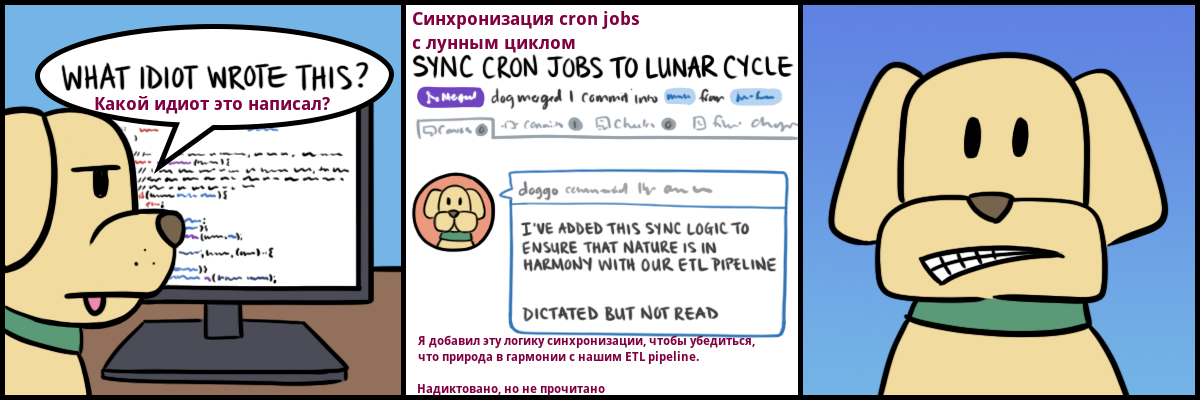 WHAT IDIOT WROTE THIS?
Какой идиот это написал?
Синхронизация cron jobs
с лунным циклом
SYNC CRON JOBS TO LUNAR CYCLE
Merged dog merged 1 commit into from
0 1 Checks 0
doggo commented
I'VE ADDED THIS SYNC LOGIC TO
ENSURE THAT NATURE IS IN
HARMONY WITH OUR ETL PIPELINE
DICTATED BUT NOT READ
Я добавил эту логику синхронизации, чтобы убедиться,
что природа в гармонии с нашим ETL pipeline.
Надиктовано, но не прочитано